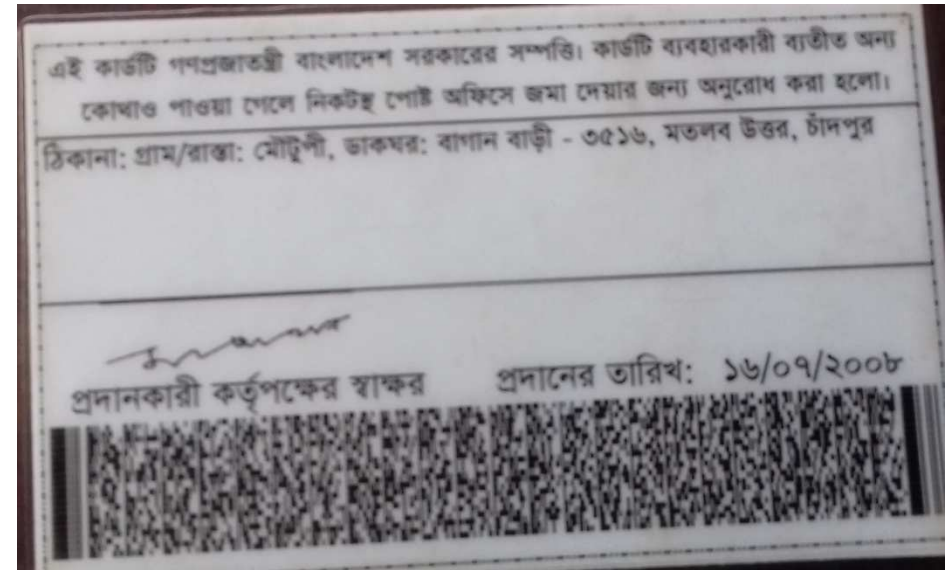 এই কার্ডটি গণপ্রজাতন্ত্রী বাংলাদেশ সরকারের সম্পত্তি। কার্ডটি ব্যবহারকারী ব্যতীত অন্য
কোথাও পাওয়া গেলে নিকটস্থ পোষ্ট অফিসে জমা দেয়ার জন্য অনুরোধ করা হলো।
ঠিকানা: গ্রাম/রাস্তা: মৌটুপী, ডাকঘর: বাগান বাড়ী - ৩৫১৬, মতলব উত্তর, চাঁদপুর
প্রদানকারী কর্তৃপক্ষের স্বাক্ষর প্রদানের তারিখ: ১৬/০৭/২০০৮